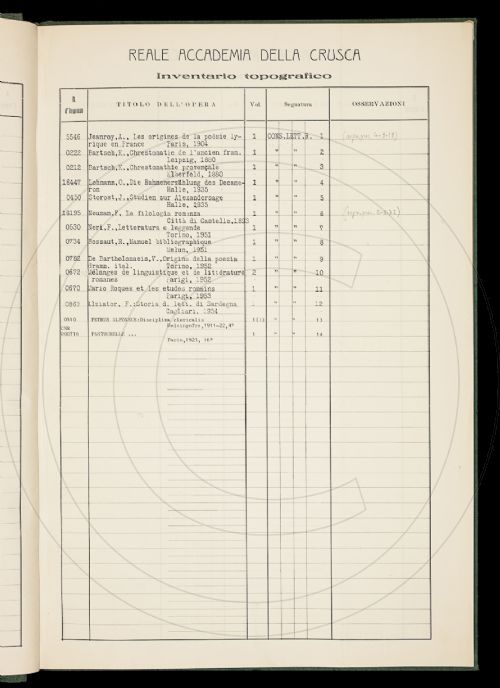 REALE ACCADEMIA DELLA CRUSCA
Inventario topografico
N. d'ingresso TITOLO DELL'OPERA Vol. Segnatura OSSERVAZIONI
5546 Jeanroy,A., Les origines de la poésie ly- 1 CONS.LETT.R. 1
rique en France Paris, 1904
0222 Bartsch,K., Chrestomatie de l'ancien fran. 1 " " 2
Leipzig, 1880
0212 Bartsch,K., Chrestomathie provençale 1 " " 3
Elberfeld, 1880
16447 Lohmann,O., Die Rahmenerzählung des Decame- 1 " " 4
ron Halle, 1935
0450 Storost,J., Studien zur Alexandersage 1 " " 5
Halle, 1935
16195 Neuman,F, La filologia romanza 1 " " 6
Città di Castello,
0530 Neri,F., Letteratura e leggende 1 " " 7
Torino, 1951
0734 Bossuat,R., Manuel bibliographique 1 " " 8
Melun, 1951
0782 De Bartholomaeis,V., Origini della poesia 1 " " 9
dramm. ital. Torino, 1952
0672 Mélanges de linguistique et de littérature 2 " " 10
romanes Parigi, 1952
0670 Mario Roques et les études romains 1 " " 11
Parigi, 1953
0860 Alziator, F.:Storia d. lett. di Sardegna 1 " " 12
Cagliari, 1954
0840 PETRUS ALFONSUS:Disciplina clericalis 1(1) " " 13
Helsingfro,1911-22,4°
CNR
000716 PASTOURELLE ... 1 " " 14
Paris,1923, 16°